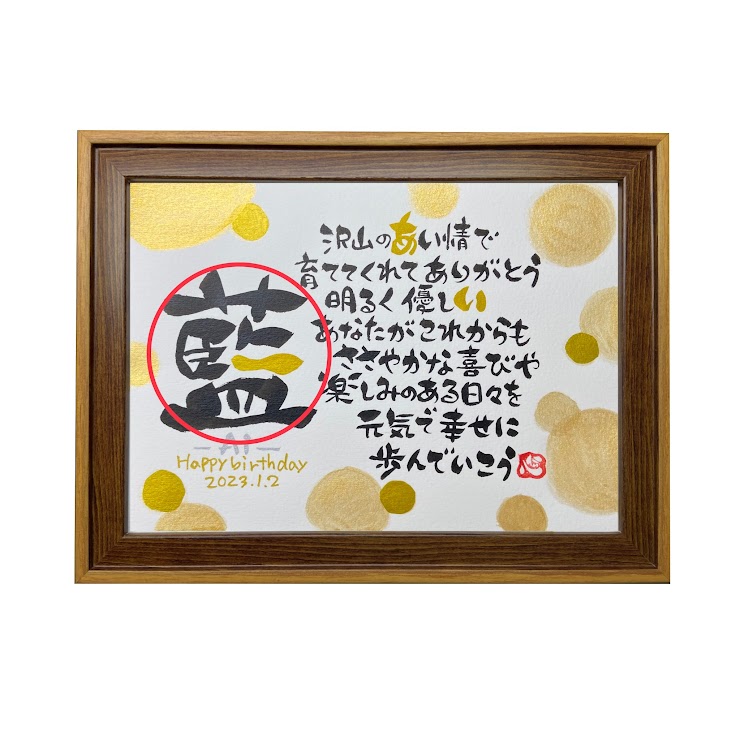 藍
—AI—
Happy birthday
2023.1.2
沢山のあい情で
育ててくれてありがとう
明るく優しい
あなたがこれからも
ささやかな喜びや
楽しみのある日々を
元気で幸せに
歩んでいこう